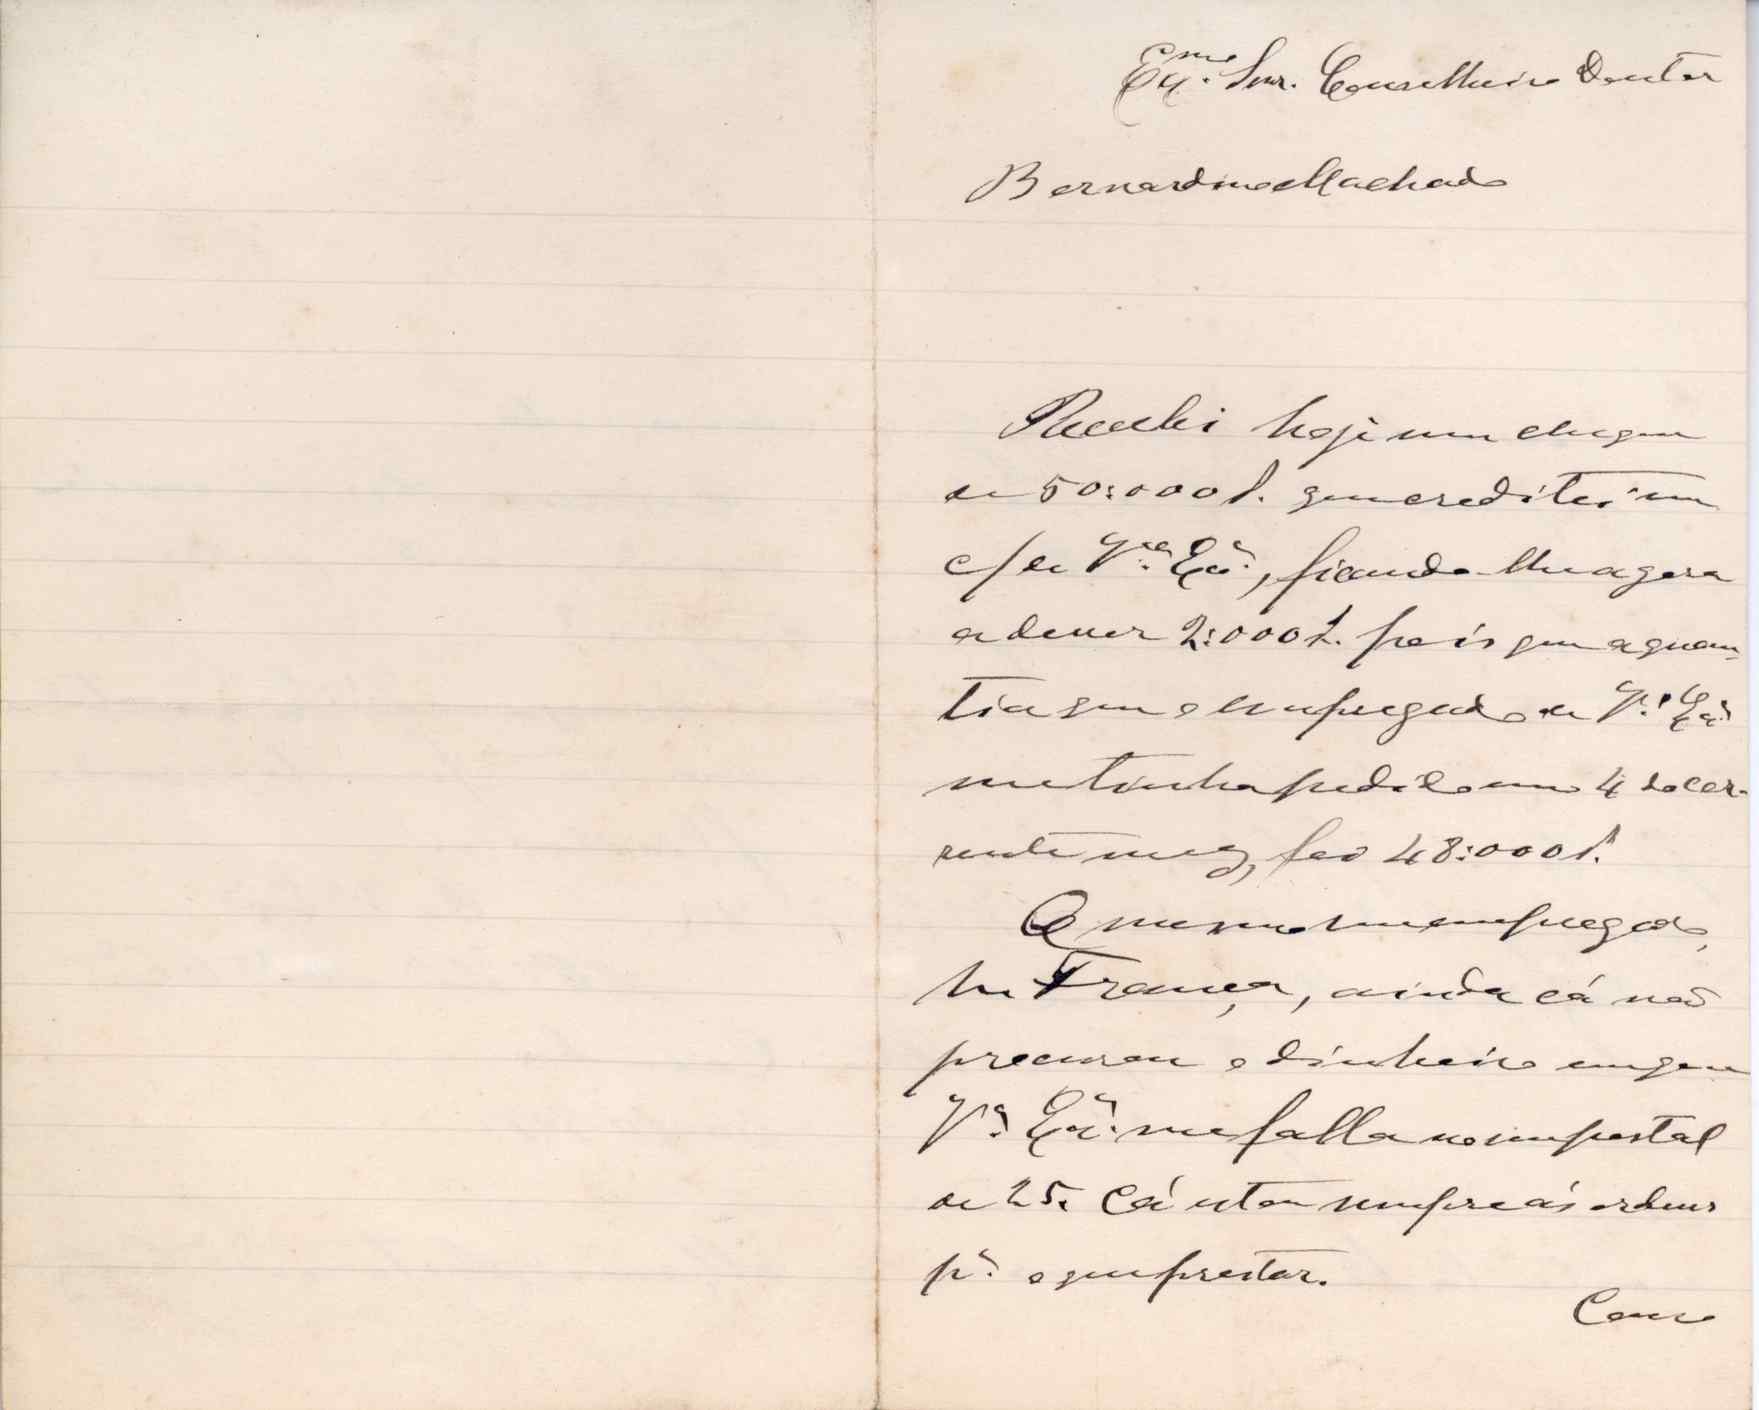 Exmo. Snr. Conselheiro Doutor
Bernardino Machado
Recebi hoje um cheque
de 50:000 r. que creditei em
c/ de V.cê Exa., ficando-lhe agora
a dever 2:000 r. pois que a quan-
tia que o empregado de V.ª Exa.
me tinha pedido em 4 do cor-
rente mez, foi 48:000 r.
O mesmo empregado,
Snr França, ainda cá não
procurou o dinheiro em que
V.ª Exa. me falla no seu postal
de 25. Cá estou sempre ás ordens
pª. o que prestar.
Com o